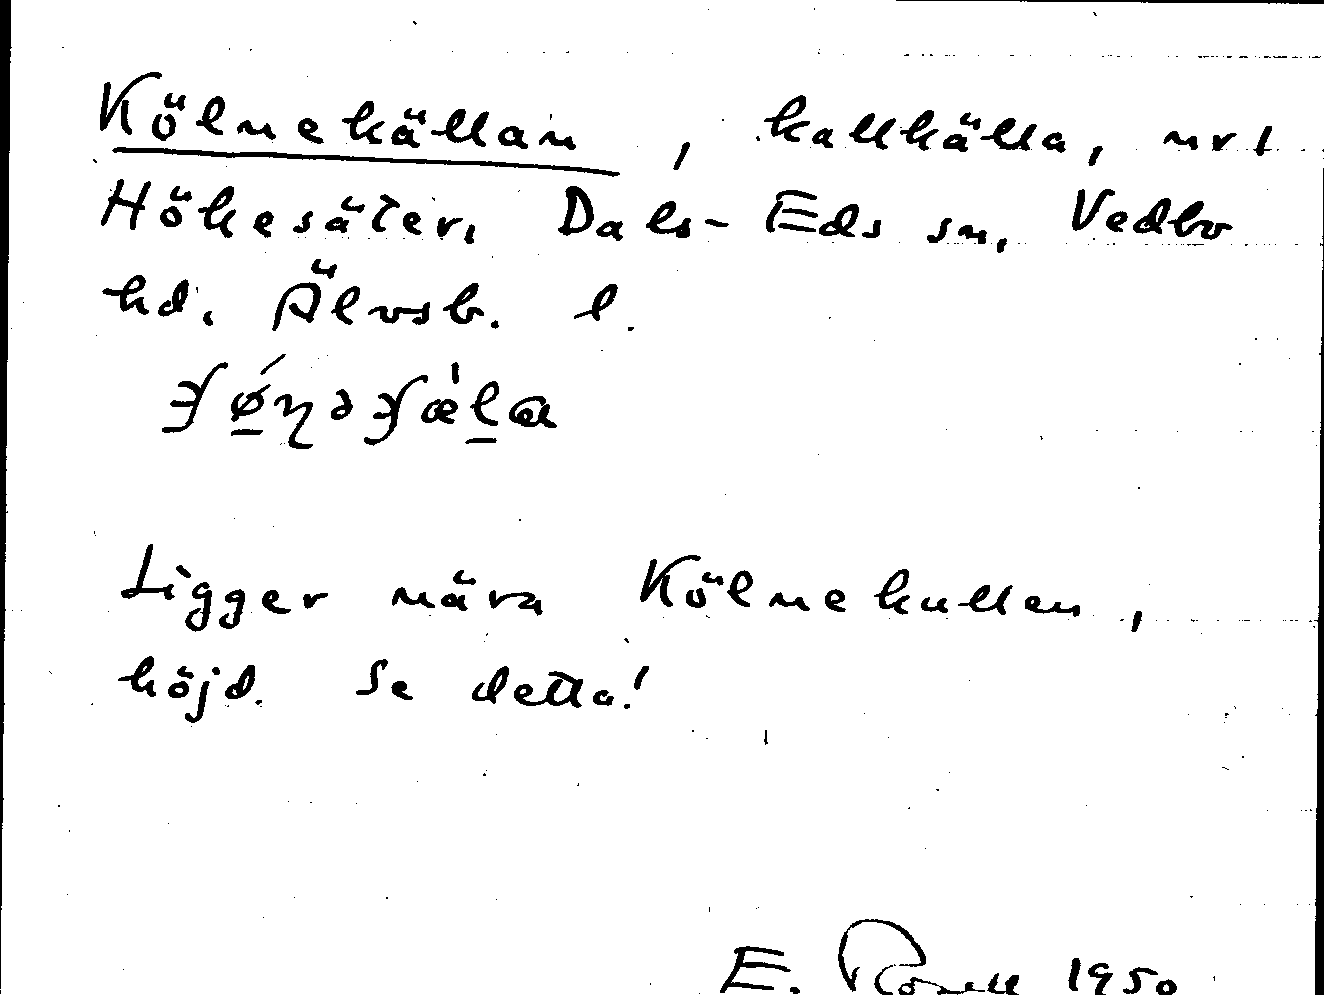 Kölnekällan, kallkälla, nr 1
Hökesäter, Dals-Eds sn, Vedbo
hd. Älvsb. l.
Ligger nära Kölnekullen,
höjd. Se detta!
E. Rosell 1950